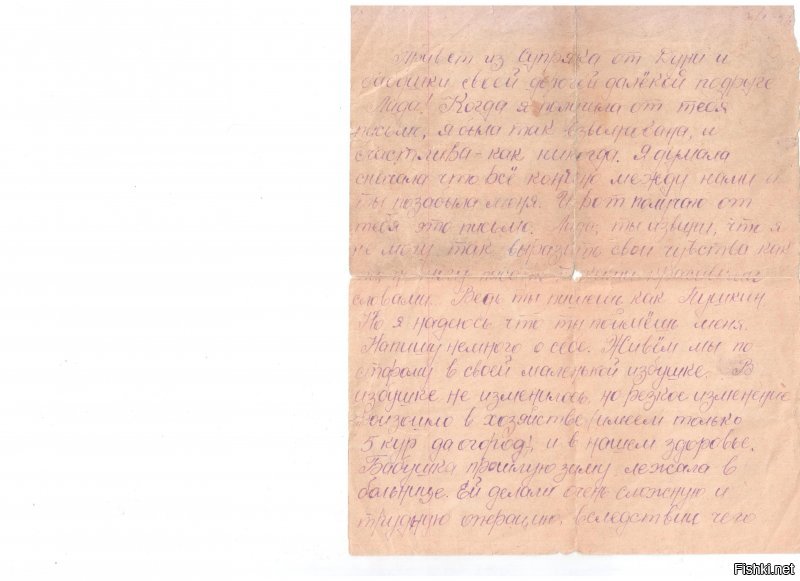 Привет из Супряка от Кати и
бабушки своей дорогой далёкой подруге
Лида! Когда я получила от тебя
письмо, я была так взволнована, и
счастлива - как никогда. Я думала
сначала что всё кончено между нами и
ты позабыла меня. И вот получаю от
тебя это письмо. Лида, ты извини, что я
не могу так выразить свои чувства как
словами. Ведь ты пишешь как Пушкин.
Но я надеюсь что ты поймёшь меня.
Напишу немного о себе. Живём мы по
старому в своей маленькой избушке. В
избушке не изменилось, но резкое изменение
произошло в хозяйстве (имеем только
5 кур да огород), и в нашем здоровье.
Бабушка прошлую зиму лежала в
больнице. Ей делали очень сложную и
трудную операцию, вследствии чего
Fishki.net